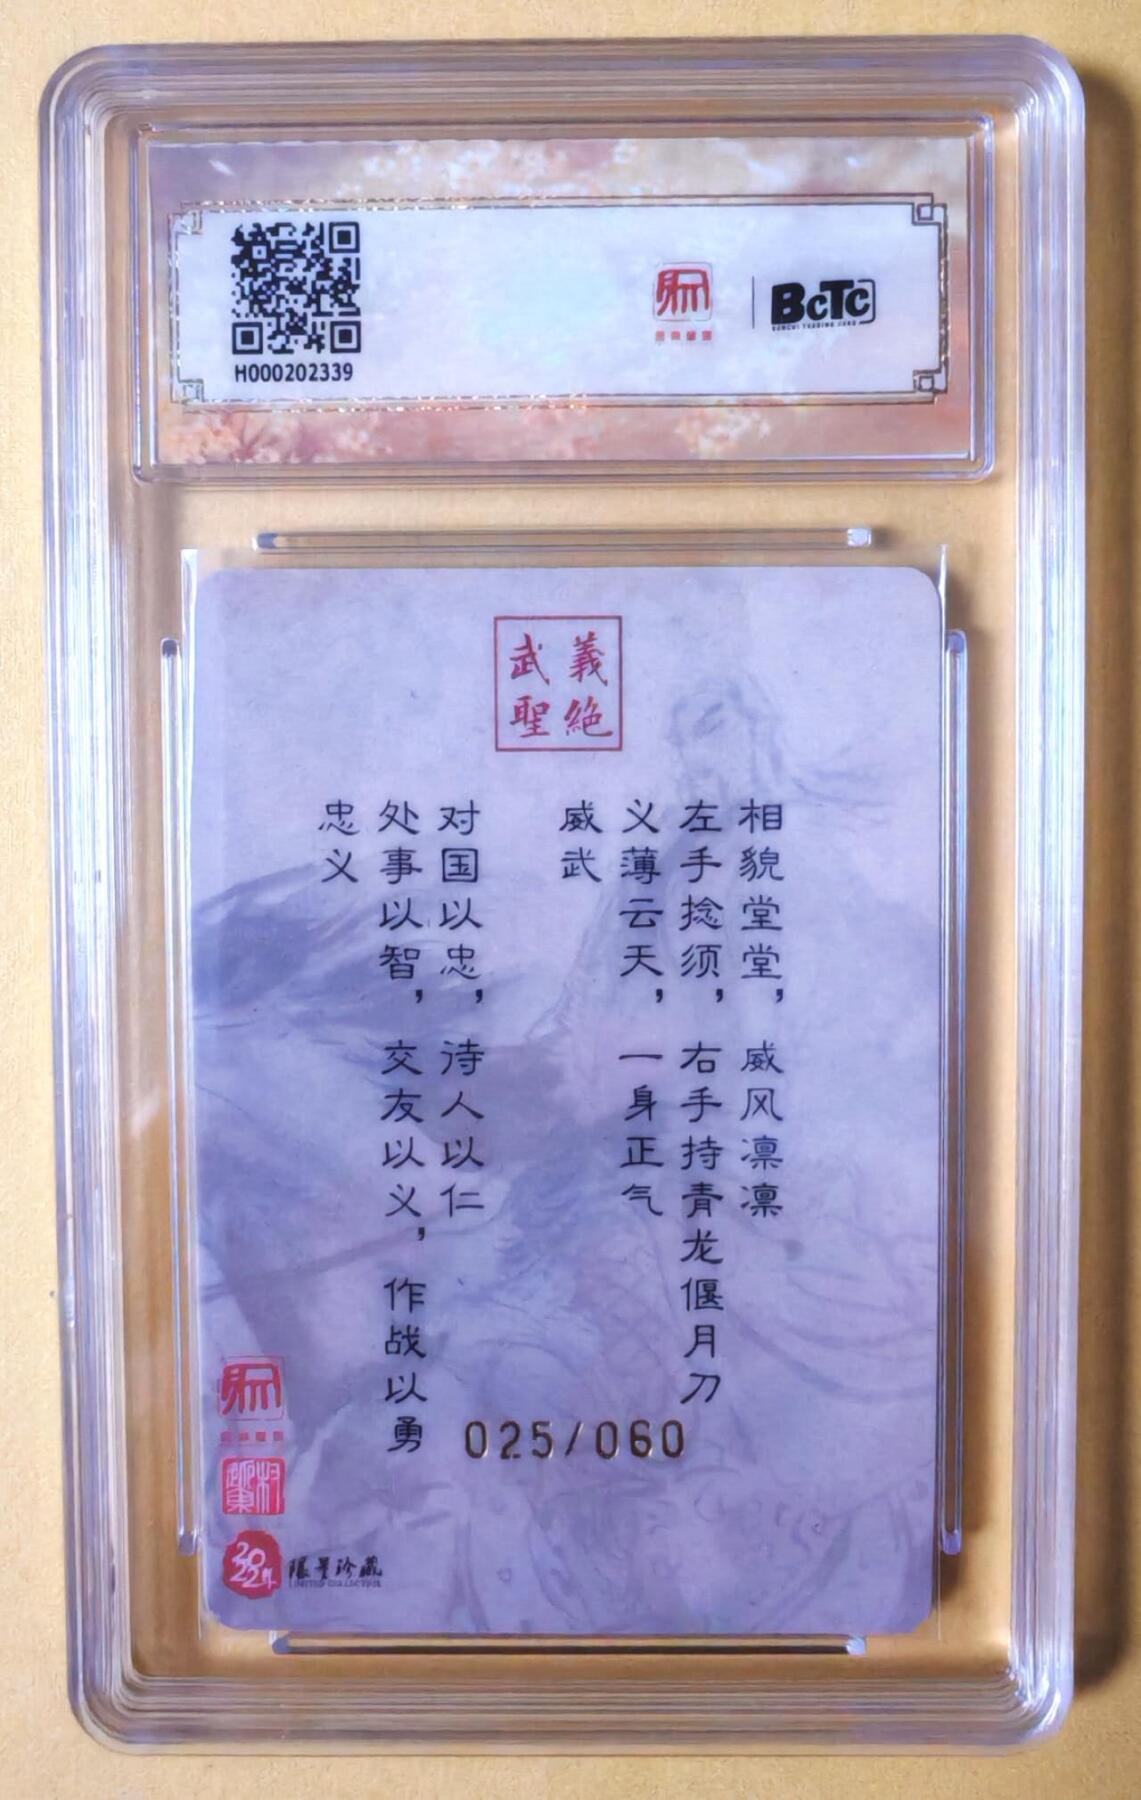 H000202339
BCTC
義絶
武聖
相貌堂堂，威风凛凛
左手捻须，右手持青龙偃月刀
义薄云天，一身正气
威武
对国以忠，待人以仁
处事以智，交友以义，作战以勇
忠义
025/060
2022年
限量珍藏
LIMITED COLLECTION